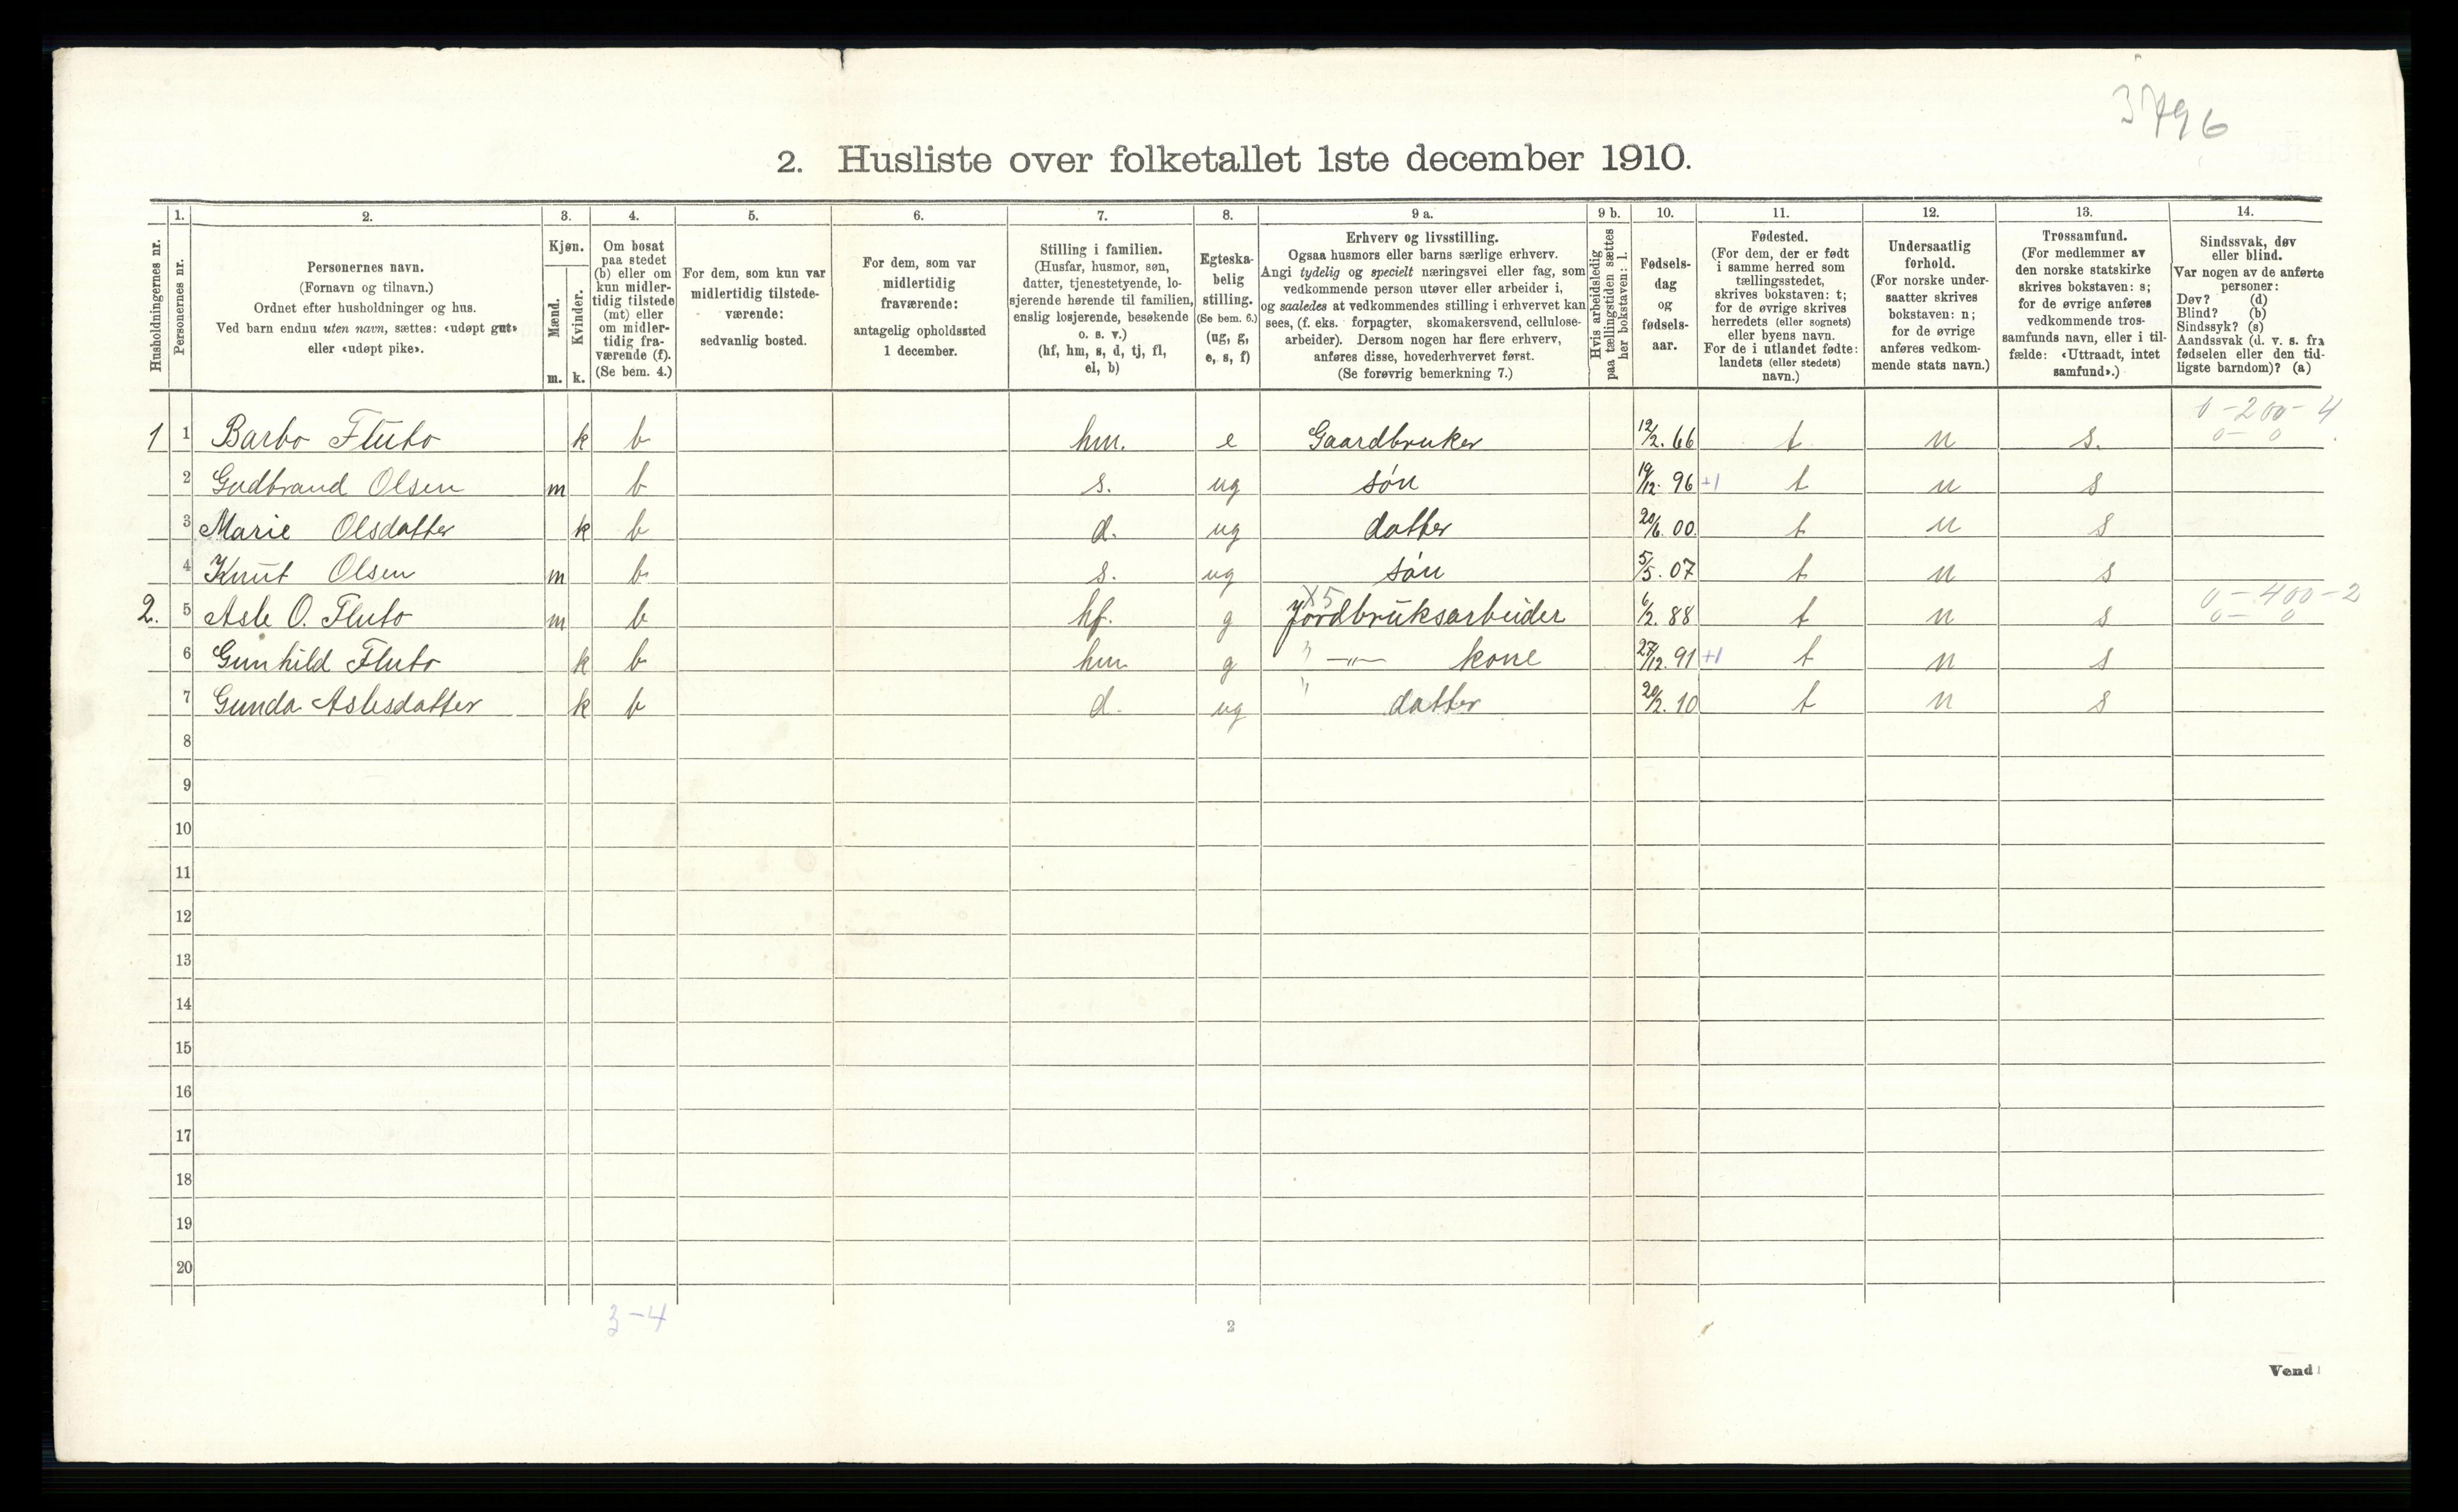 3796
2. Husliste over folketallet 1ste december 1910.
1. 2. 3. 4. 5. 6. 7. 8. 9 a. 9 b. 10. 11. 12. 13. 14.
Husholdningernes nr.
Personernes nr.
Personernes navn.
(Fornavn og tilnavn.)
Ordnet efter husholdninger og hus.
Ved barn endnu uten navn, sættes: «udøpt gut»
eller «udøpt pike».
Kjøn.
Mænd.
m.
Kvinder.
k.
Om bosat
paa stedet
(b) eller om
kun midler-
tidig tilstede
(mt) eller
om midler-
tidig fra-
værende (f).
(Se bem. 4.)
For dem, som kun var
midlertidig tilstede-
værende:
sedvanlig bosted.
For dem, som var
midlertidig
fraværende:
antagelig opholdssted
1 december.
Stilling i familien.
(Husfar, husmor, søn,
datter, tjenestetyende, lo-
sjerende hørende til familien,
enslig losjerende, besøkende
o. s. v.)
(hf, hm, s, d, tj, fl,
el, b)
Egteska-
belig
stilling.
(Se bem. 6.)
(ug, g,
e, s, f)
Erhverv og livsstilling.
Ogsaa husmors eller barns særlige erhverv.
Angi tydelig og specielt næringsvei eller fag, som
vedkommende person utøver eller arbeider i,
og saaledes at vedkommendes stilling i erhvervet kan
sees, (f. eks. forpagter, skomakersvend, cellulose-
arbeider). Dersom nogen har flere erhverv,
anføres disse, hovederhvervet først.
(Se forøvrig bemerkning 7.)
Hvis arbeidsledig
paa tællingstiden sættes
her bokstaven: l.
Fødsels-
dag
og
fødsels-
aar.
Fødested.
(For dem, der er født
i samme herred som
tællingsstedet,
skrives bokstaven: t;
for de øvrige skrives
herredets (eller sognets)
eller byens navn.
For de i utlandet fødte:
landets (eller stedets)
navn.)
Undersaatlig
forhold.
(For norske under-
saatter skrives
bokstaven: n;
for de øvrige
anføres vedkom-
mende stats navn.)
Trossamfund.
(For medlemmer av
den norske statskirke
skrives bokstaven: s;
for de øvrige anføres
vedkommende tros-
samfunds navn, eller i til-
fælde: «Uttraadt, intet
samfund».)
Sindssvak, døv
eller blind.
Var nogen av de anførte
personer:
Døv? (d)
Blind? (b)
Sindssyk? (s)
Aandssvak (d. v. s. fra
fødselen eller den tid-
ligste barndom)? (a)
0-200-4
1 1 Barbo Fluto k b hm. e Gaardbruker 12/2. 66 t n s. 0- 0
2 Gudbrand Olsen m b s. ug søn 19/12. 96 +1 t n s
3 Marie Olsdatter k b d. ug datter 20/6. 00. t n s
4 Knut Olsen m b s. ug søn 5/5. 07 t n s
X5 0-400-2
2. 5 Asle O. Fluto m b hf. g Jordbruksarbeider 6/2. 88 t n s 0- 0
6 Gunhild Fluto k b hm g " —"— kone 27/12. 91 +1 t n s
7 Gunda Aslesdatter k b d. ug " datter 20/2. 10 t n s
8
9
10
11
12
13
14
15
16
17
18
19
20
3-4
2
Vend